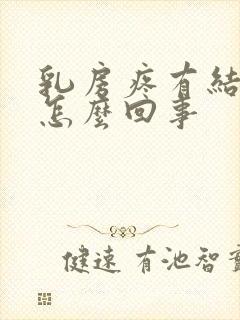 乳房疼有結
怎麼回事
健速 有池智